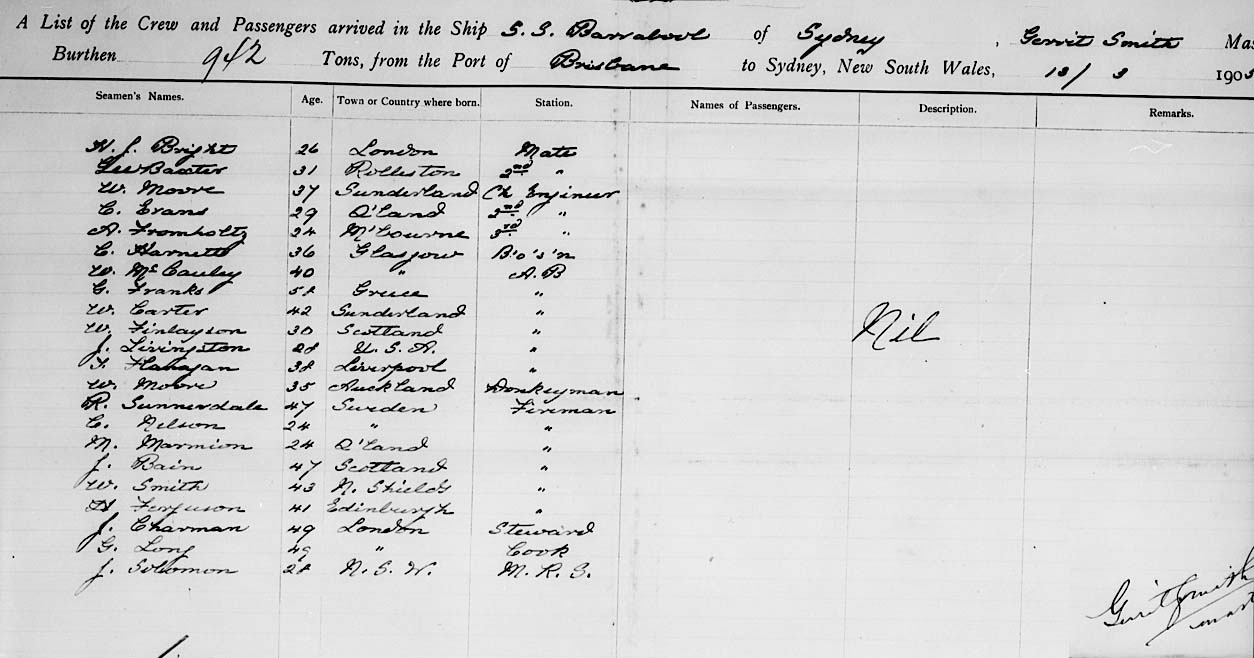 A List of the Crew and Passengers arrived in the Ship S. S. Barrabool of Sydney, Gerrit Smith Mas
Burthen 942 Tons, from the Port of Brisbane to Sydney, New South Wales, 13/3 1905
Seamen's Names. Age. Town or Country where born. Station. Names of Passengers. Description. Remarks.
H. J. Bright 26 London Mate
Geo Baxter 31 Rolleston 2nd "
W. Moore 37 Sunderland Ch Engineer
C. Evans 29 Q'land 2nd "
A. Fromholtz 24 M'bourne 3rd "
C. Harnett 36 Glasgow B'o's'n
W. McCauley 40 " A. B
G. Franks 58 Greece "
W. Carter 42 Sunderland "
W. Finlayson 30 Scotland "
J. Livingston 28 U. S. A. "
F. Flanagan 38 Liverpool "
W. Moore 35 Auckland Donkeyman
R. Sunnerdale 47 Sweden Fireman
C. Nelson 24 " "
M. Marmion 24 Q'land "
J. Bain 47 Scotland "
W. Smith 43 N. Shields "
H Ferguson 41 Edinburgh "
J. Charman 49 London Steward
G. Long 49 " Cook
J. Solomon 28 N. S. W. M. R. S.
Nil
Gerrit Smith
mast